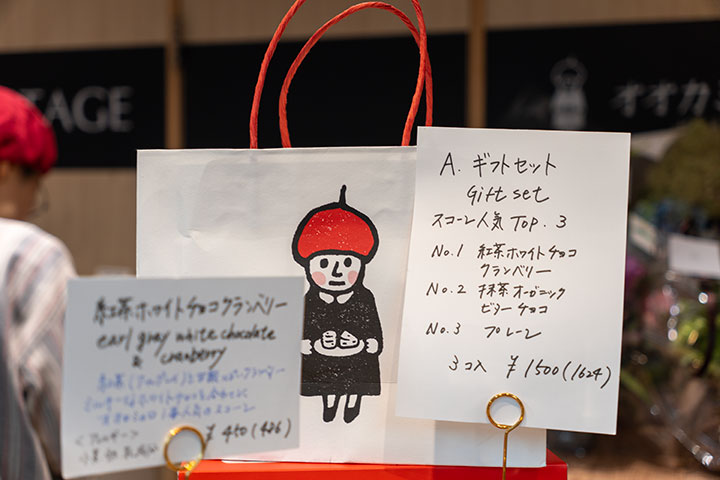 TAGE
オオカ
A. ギフトセット
Gift set
スコーン人気 TOP. 3
No.1 紅茶ホワイトチョコ
クランベリー
No.2 抹茶オーガニック
ビターチョコ
No.3 プレーン
3コ入 ¥1500(1624)
紅茶ホワイトチョコクランベリー
earl gray white chocolate
&
cranberry
紅茶(アールグレイ)と
ホワイトチョコ
人気のスコーン
<アレルギー>
小麦 乳
¥450(486)